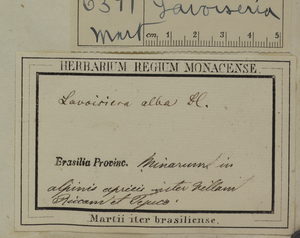 6371 Lavoiseria
Mart
cm 1 2 3 4 5
HERBARIUM REGIUM MONACENSE.
Lavoisiera alba DC.
Brasilia Provinc. Minarum in
alpinis apricis inter Villam
Ricam et Tejuco
Martii iter brasiliense.